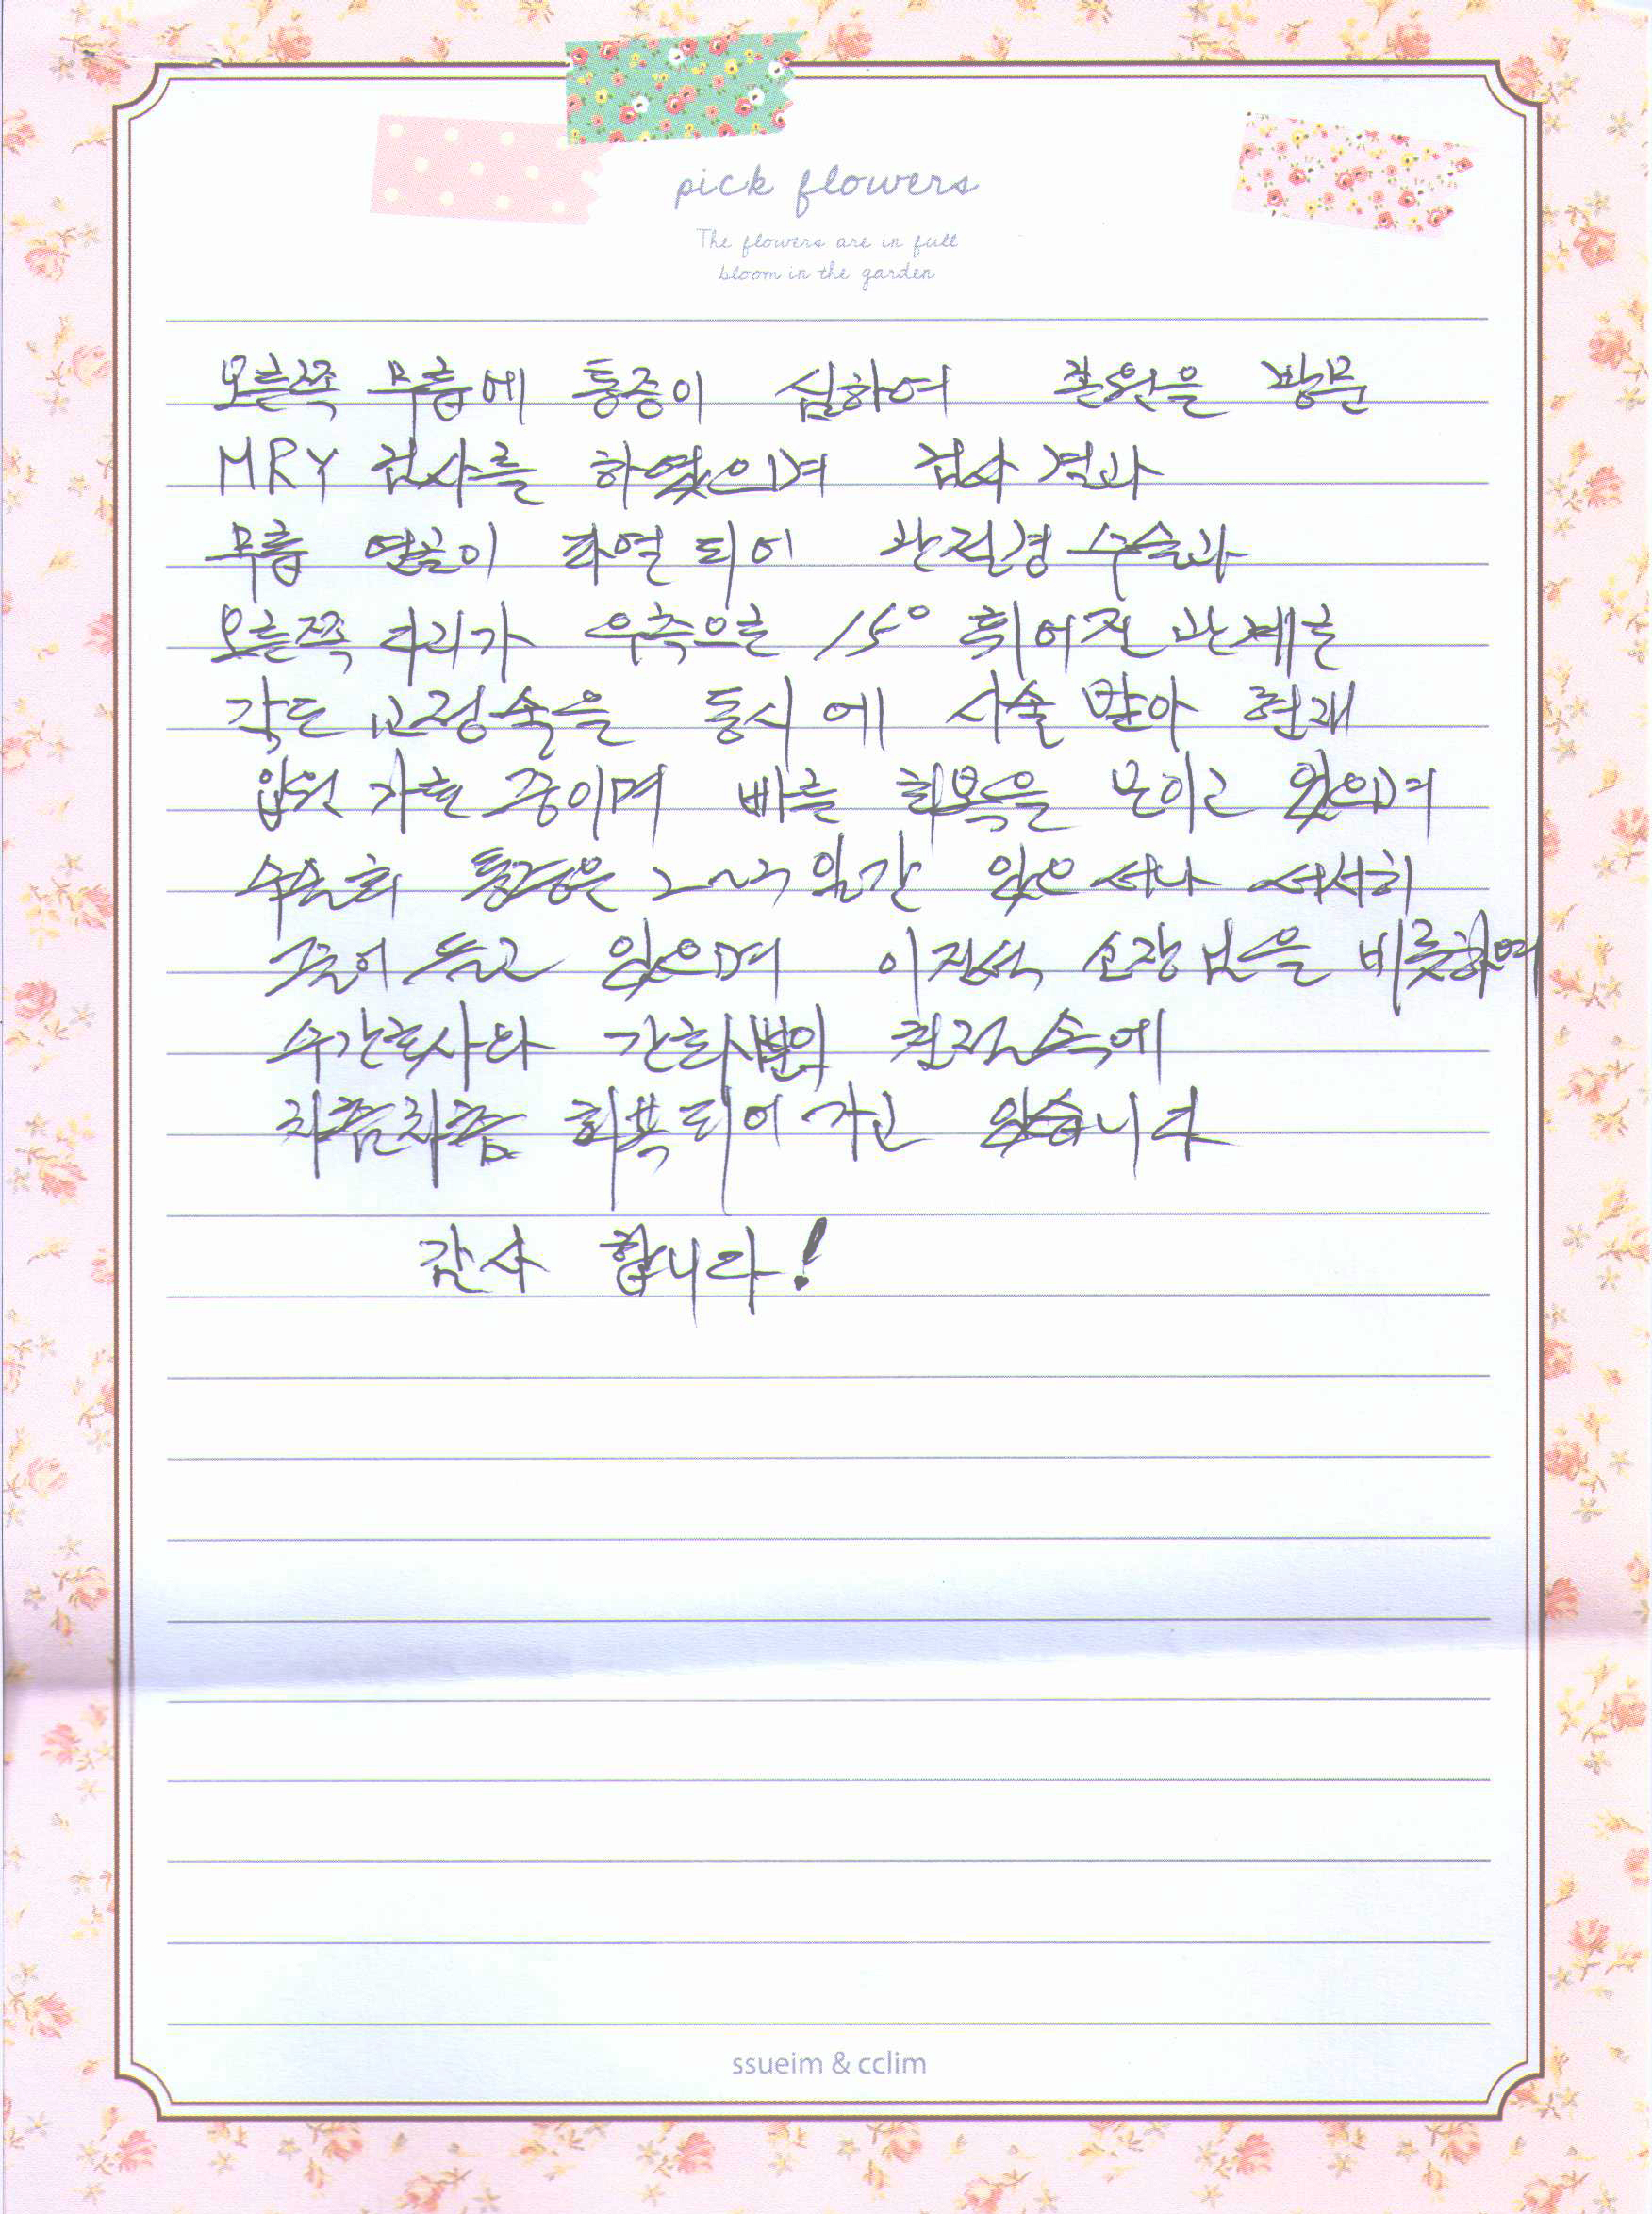 pick flowers
The flowers are in full
bloom in the garden
오른쪽 무릎에 통증이 심하여 본원을 방문
MRY 검사를 하였으며 검사 결과
무릎 연골이 파열 되어 관절경 수술과
오른쪽 다리가 우측으로 15° 휘어진 관계로
각도 교정술을 동시에 시술 받아 현재
입원 가료 중이며 빠른 회복을 보이고 있으며
수술후 통증은 2~3일간 있으나 서서히
줄어 들고 있으며 이진석 소장님을 비롯하여
수간호사와 간호사분의 친절속에
차츰차츰 회복되어 가고 있습니다
감사 합니다!
ssueim & cclim